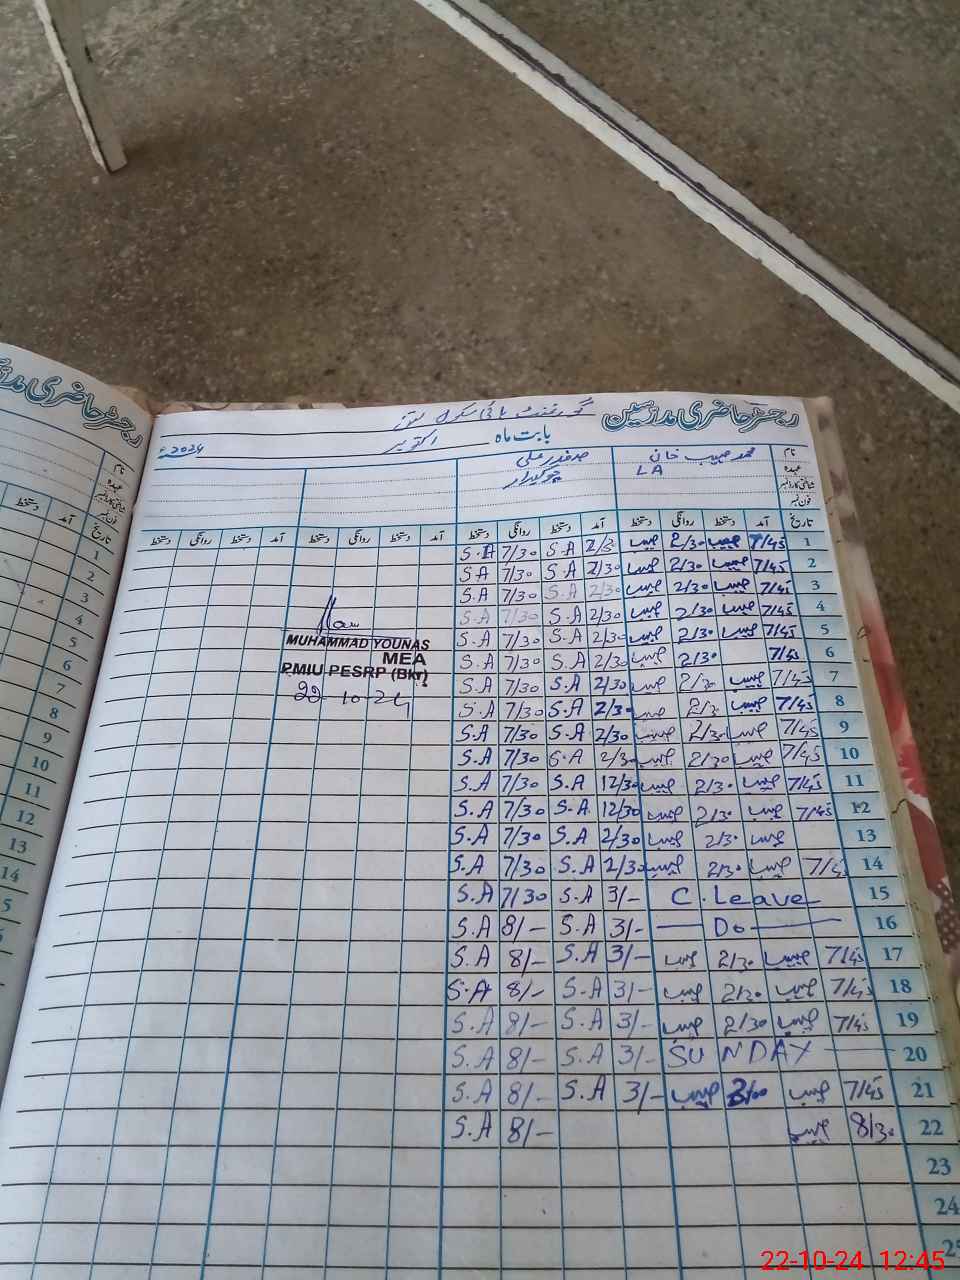 رجسٹر حاضری مدرسین
گورنمنٹ ہائی سکول
بابت ماہ اکتوبر 2024ء
نام محمد حبیب خان صفدر علی
عہدہ LA چوکیدار
شناختی کارڈ نمبر
فون نمبر
تاریخ آمد دستخط روانگی دستخط آمد دستخط روانگی دستخط آمد دستخط روانگی دستخط آمد دستخط روانگی دستخط
1 7/45 حبیب 2/30 حبیب 2/30 S.A 7/30 S.A
2 7/45 حبیب 2/30 حبیب 2/30 S.A 7/30 S.A
3 7/45 حبیب 2/30 حبیب 2/30 S.A 7/30 S.A
4 7/45 حبیب 2/30 حبیب 2/30 S.A 7/30 S.A
5 7/45 حبیب 2/30 حبیب 2/30 S.A 7/30 S.A
6 7/45 2/30 حبیب 2/30 S.A 7/30 S.A
7 7/45 حبیب 2/30 حبیب 2/30 S.A 7/30 S.A
8 7/45 حبیب 2/30 حبیب 2/30 S.A 7/30 S.A
9 7/45 حبیب 2/30 حبیب 2/30 S.A 7/30 S.A
10 7/45 حبیب 2/30 حبیب 2/30 S.A 7/30 S.A
11 7/45 حبیب 2/30 حبیب 12/30 S.A 7/30 S.A
12 7/45 حبیب 2/30 حبیب 12/30 S.A 7/30 S.A
13 حبیب 2/30 حبیب 2/30 S.A 7/30 S.A
14 7/45 حبیب 2/30 حبیب 2/30 S.A 7/30 S.A
15 C. Leave 3/- S.A 7/30 S.A
16 — Do — 3/- S.A 8/- S.A
17 7/45 حبیب 2/30 حبیب 3/- S.A 8/- S.A
18 7/45 حبیب 2/30 حبیب 3/- S.A 8/- S.A
19 7/45 حبیب 2/30 حبیب 3/- S.A 8/- S.A
20 SUNDAY 3/- S.A 8/- S.A
21 7/45 حبیب 3/00 حبیب 3/- S.A 8/- S.A
22 8/30 حبیب 8/- S.A
23
24
25
MUHAMMAD YOUNAS
MEA
PMIU PESRP (Bkr)
22-10-24
رجسٹر حاضری
نام
عہدہ
شناختی کارڈ نمبر
فون نمبر
تاریخ آمد دستخط
1
2
3
4
5
6
7
8
9
10
11
12
13
14
22-10-24 12:45